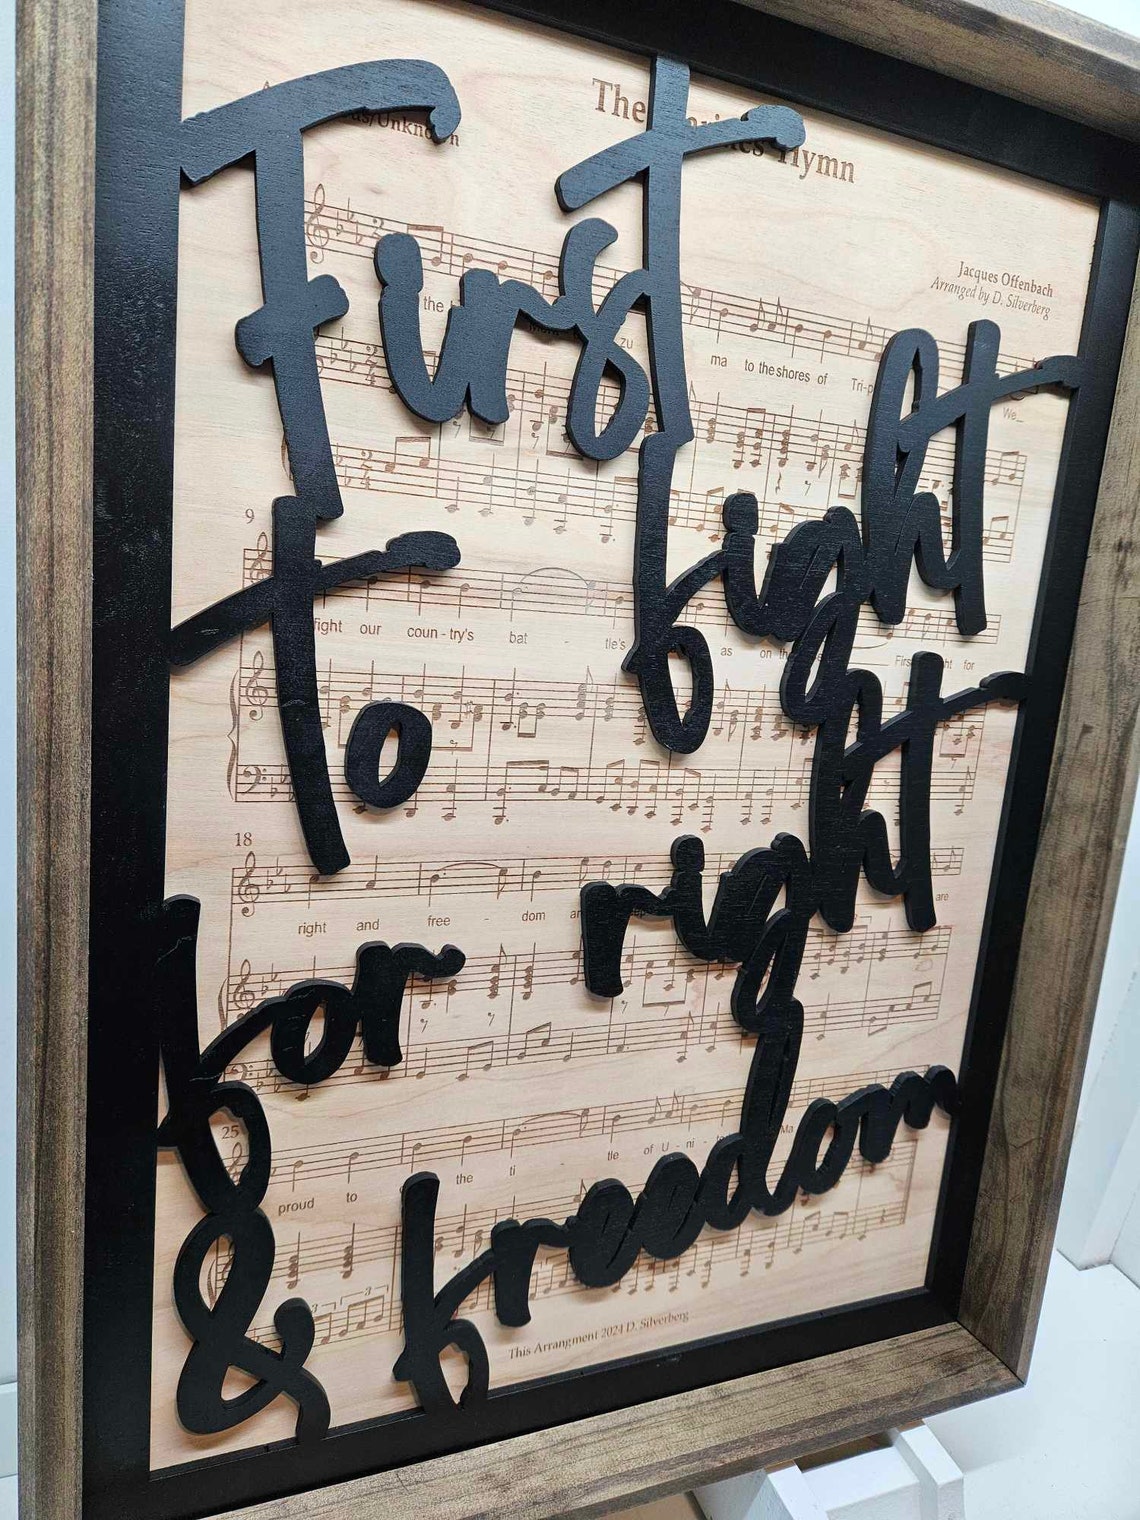 First
To fight
for right
& freedom
The Hymn
Jacques Offenbach
Arranged by D. Silverberg
the
zu ma to the shores of
We_
9
fight our coun - try's bat - tle's as on for
18
right and free - dom are
25
proud to the ti tle of U - ni -
3 3
This Arrangment 2024 D. Silverberg